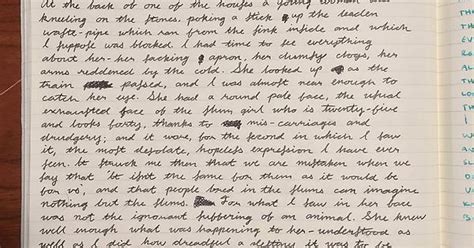 At the back of one of the houses a young woman was
kneeling on the ſtones, poking a ſtick up the leaden
waſte-pipe which ran from the ſink inſide and which
I ſuppoſe was blocked. I had time to ſee everything
about her - her ſacking apron, her clumſy clogs, her
arms reddened by the cold. She looked up as the
train paſſed, and I was almoſt near enough to
catch her eye. She had a round pale face, the uſual
exhauſted face of the ſlum girl who is twenty-five
and looks forty, thanks to miſ-carriages and
drudgery; and it wore, for the ſecond in which I ſaw
it, the moſt deſolate, hopeleſs expreſſion I have ever
ſeen. It ſtruck me then that we are miſtaken when we
ſay that 'It iſnt the ſame for them as it would be
for us', and that people bred in the ſlums can imagine
nothing but the ſlums. For what I ſaw in her face
was not the ignorant ſuffering of an animal. She knew
well enough what was happening to her - underſtood as
well as I did how dreadful a deſtiny it was to be